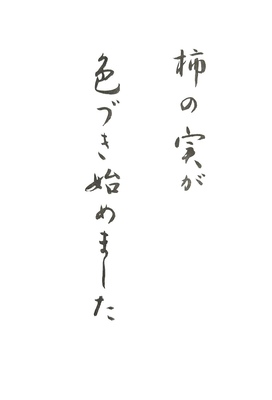 柿の実が
色づき始めました